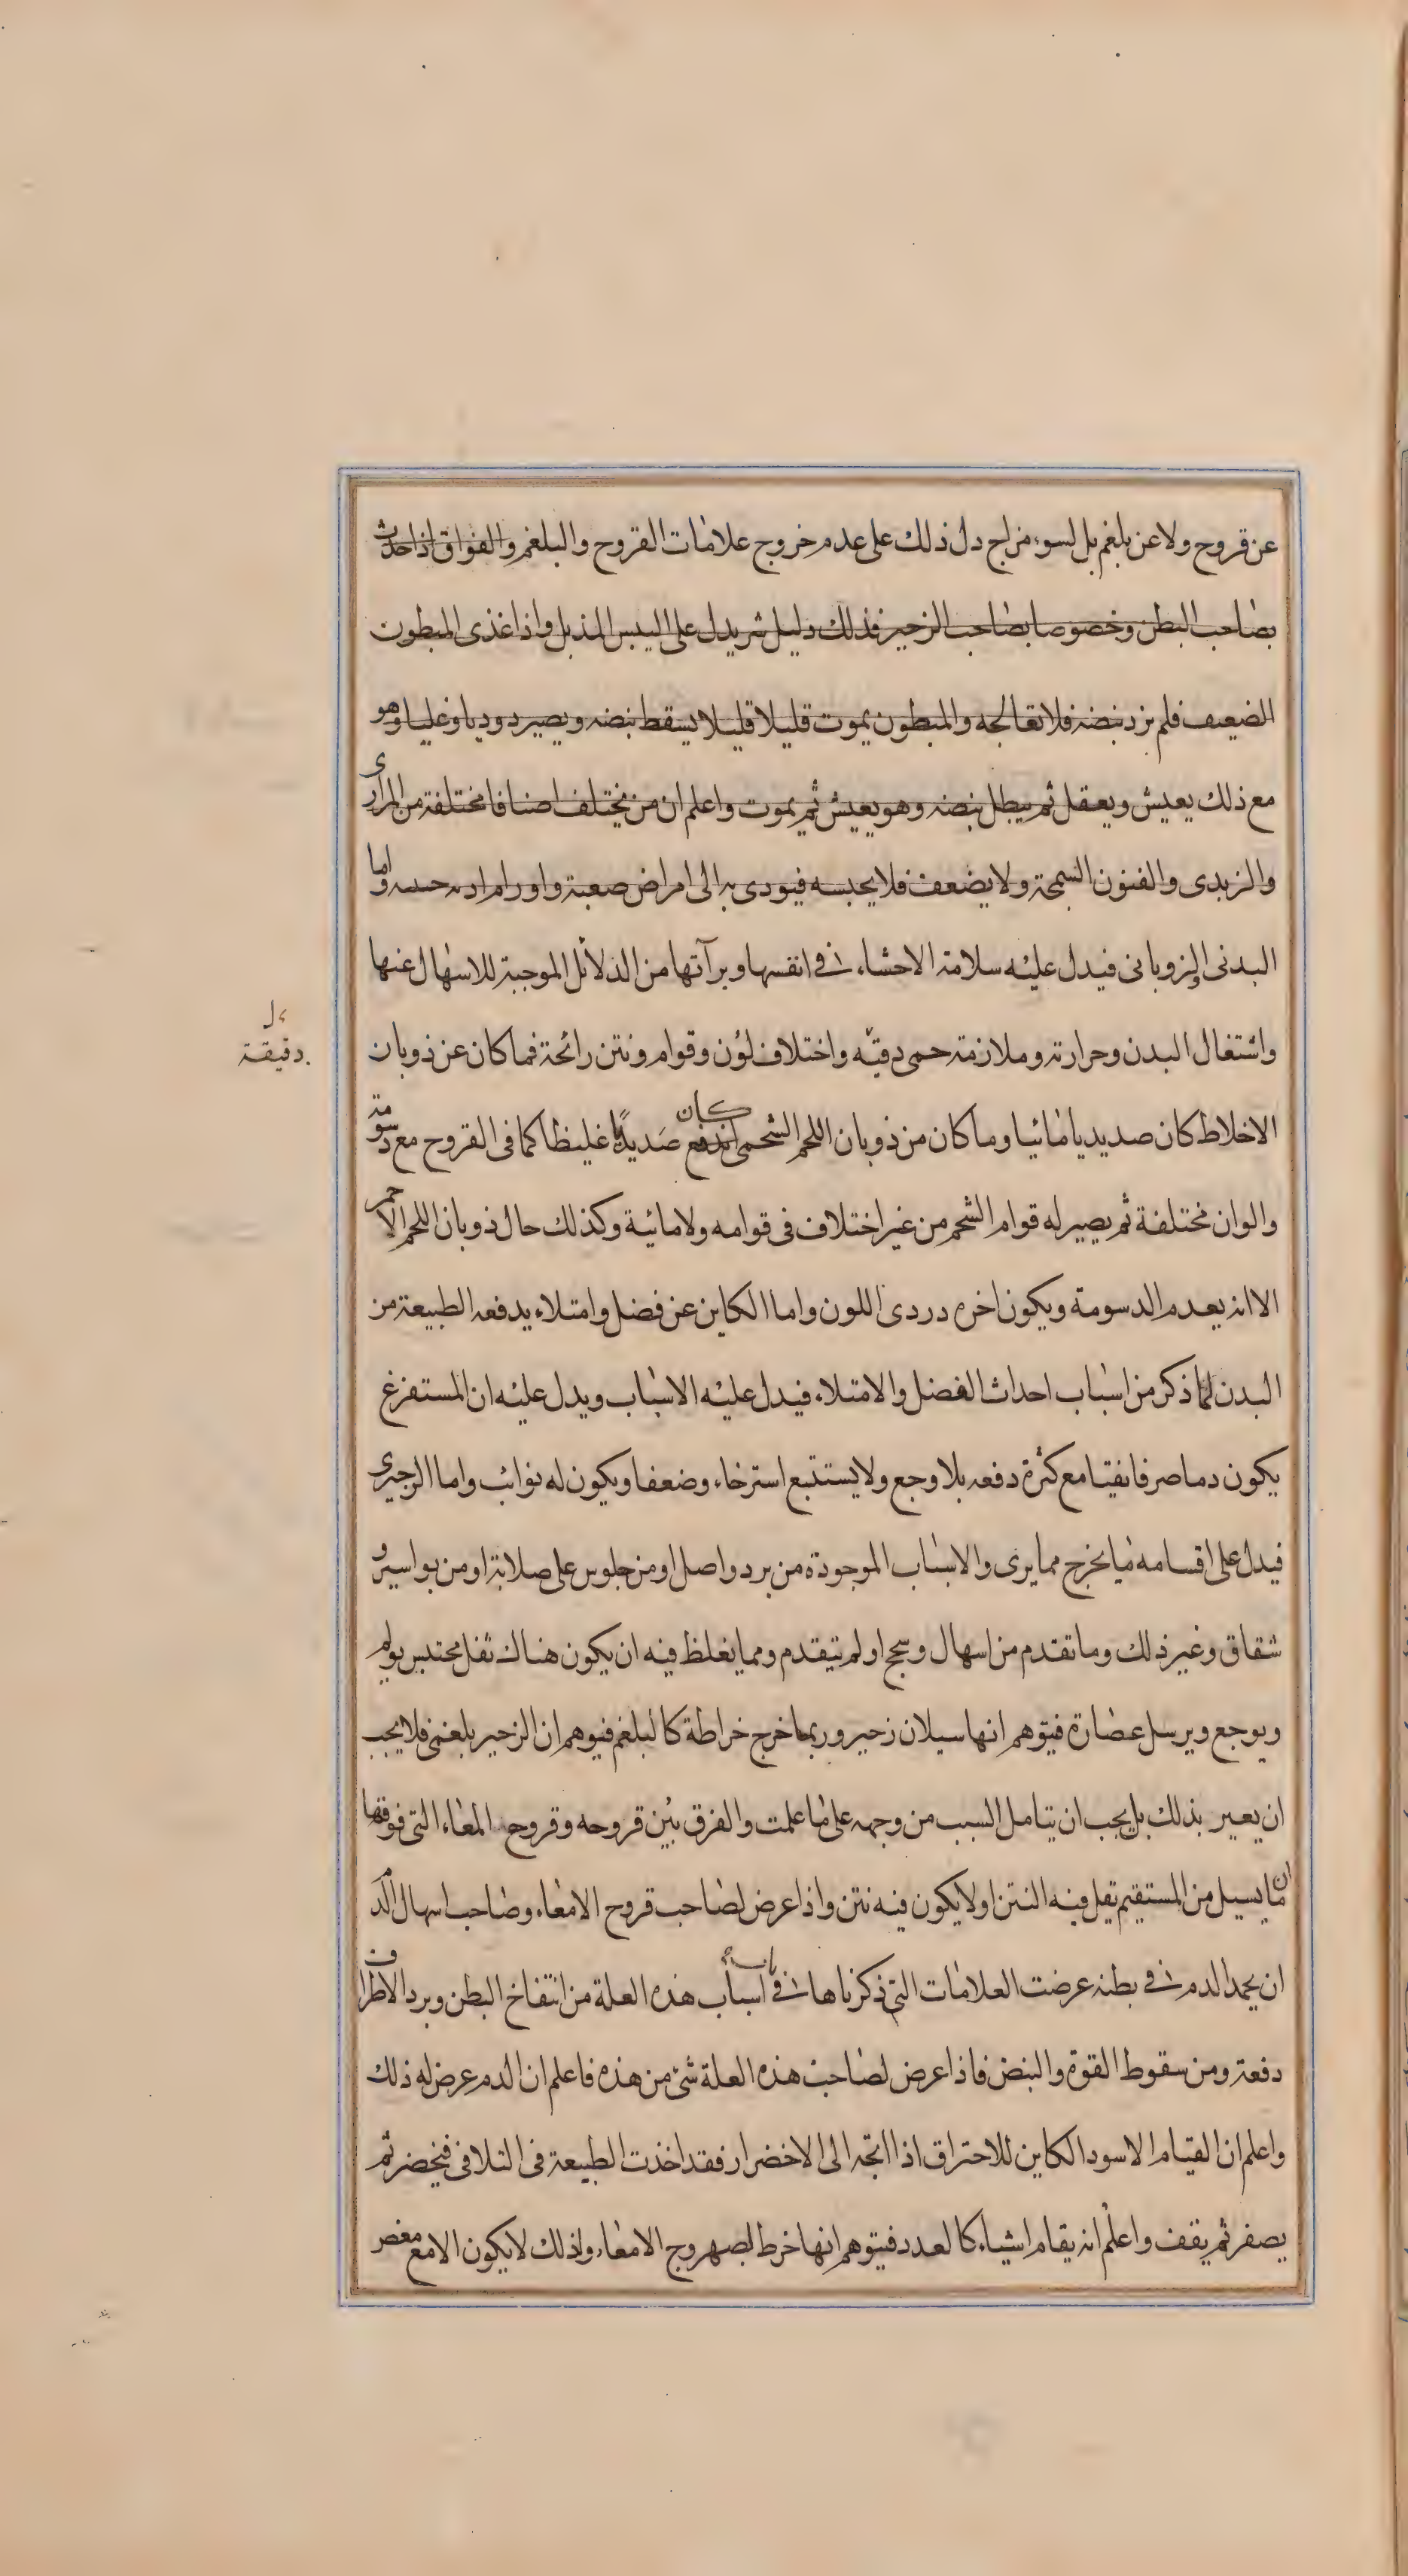 عن قروح ولا عن بلغم بل لسوء مزاج دل ذلك على عدم خروج علامات القروح والبلغم والفواق اذا حدث
بصاحب البطن وخصوصا بصاحب الزحير فذلك دليل شر يدل على اليبس المذبل واذا غذى المبطون
الضعيف فلم يزد نبضه فلا تعالجه والمبطون يموت قليلا قليلا يسقط نبضه ويصير دوديا و نمليا وهو
مع ذلك يعيش ويعقل ثم يبطل نبضه وهو يعيش ثم يموت واعلم ان من يختلف اصنافا مختلفة من المرارى
والزبدى والفنون السمجة ولا يضعف فلا يحبسه فيودى به الى امراض صعبة واورام واما
البدنى الذوبانى فيدل عليه سلامة الاحشاء فى انفسها وبرآتها من الدلائل الموجبة للاسهال عنها
واشتعال البدن وحرارته وملازمة حمى دقيّه واختلاف لون وقوام ونتن رائحة فما كان عن ذوبان
دقيقة
الاخلاط كان صديديا مائيا وما كان من ذوبان اللحم الشحمى كان صديدًا غليظا كما فى القروح مع دسومة
والوان مختلفة ثم يصير له قوام الشحم من غير اختلاف فى قوامه ولا مائية وكذلك حال ذوبان اللحم الاحمر
الا انه يعدم الدسومة ويكون اخره دردى اللون واما الكاين عن فضل وامتلاء يدفعه الطبيعة من
البدن لما ذكر من اسباب احداث الفضل والامتلاء فيدل عليه الاسباب ويدل عليه ان المستفرغ
يكون دما صرفا نقيا مع كثرة دفعه بلا وجع ولا يستتبع استرخاء وضعفا ويكون له نوائب واما الزحيرى
فيدل على اقسامه ما يخرج مما يرى والاسباب الموجودة من برد واصل او من جلوس على صلابة او من بواسير و
شقاق وغير ذلك وما تقدم من اسهال وسحج او لم يتقدم ومما يغلظ فيه ان يكون هناك ثفل محتبس يولم
ويوجع ويرسل عصارة فيتوهم انها سيلان زحير وربما خرج خراطة كالبلغم فيوهم ان الزحير بلغمى فلا يجب
ان يعير بذلك بل يجب ان يتامل السبب من وجهه على ما علمت والفرق بين قروحه وقروح المعاء التى فوقها
ان ما يسيل من المستقيم يقل فيه النتن او لا يكون فيه نتن واذا عرض لصاحب قروح الامعاء وصاحب اسهال الدم
ان يجمد الدم فى بطنه عرضت العلامات التى ذكرناها فى اسباب هذه العلة من انتفاخ البطن وبرد الاطراف
دفعة ومن سقوط القوة والنبض فاذا عرض لصاحب هذه العلة شئ من هذه فاعلم ان الدم عرض له ذلك
واعلم ان القيام الاسود الكاين للاحتراق اذا اتجه الى الاخضرار فقد اخذت الطبيعة فى التلافى فيخضر ثم
يصفر ثم يقف واعلم انه يقام اشياء كالغدد فيتوهم انها خرط لصهروج الامعاء واذلك لا يكون الا مع مغص